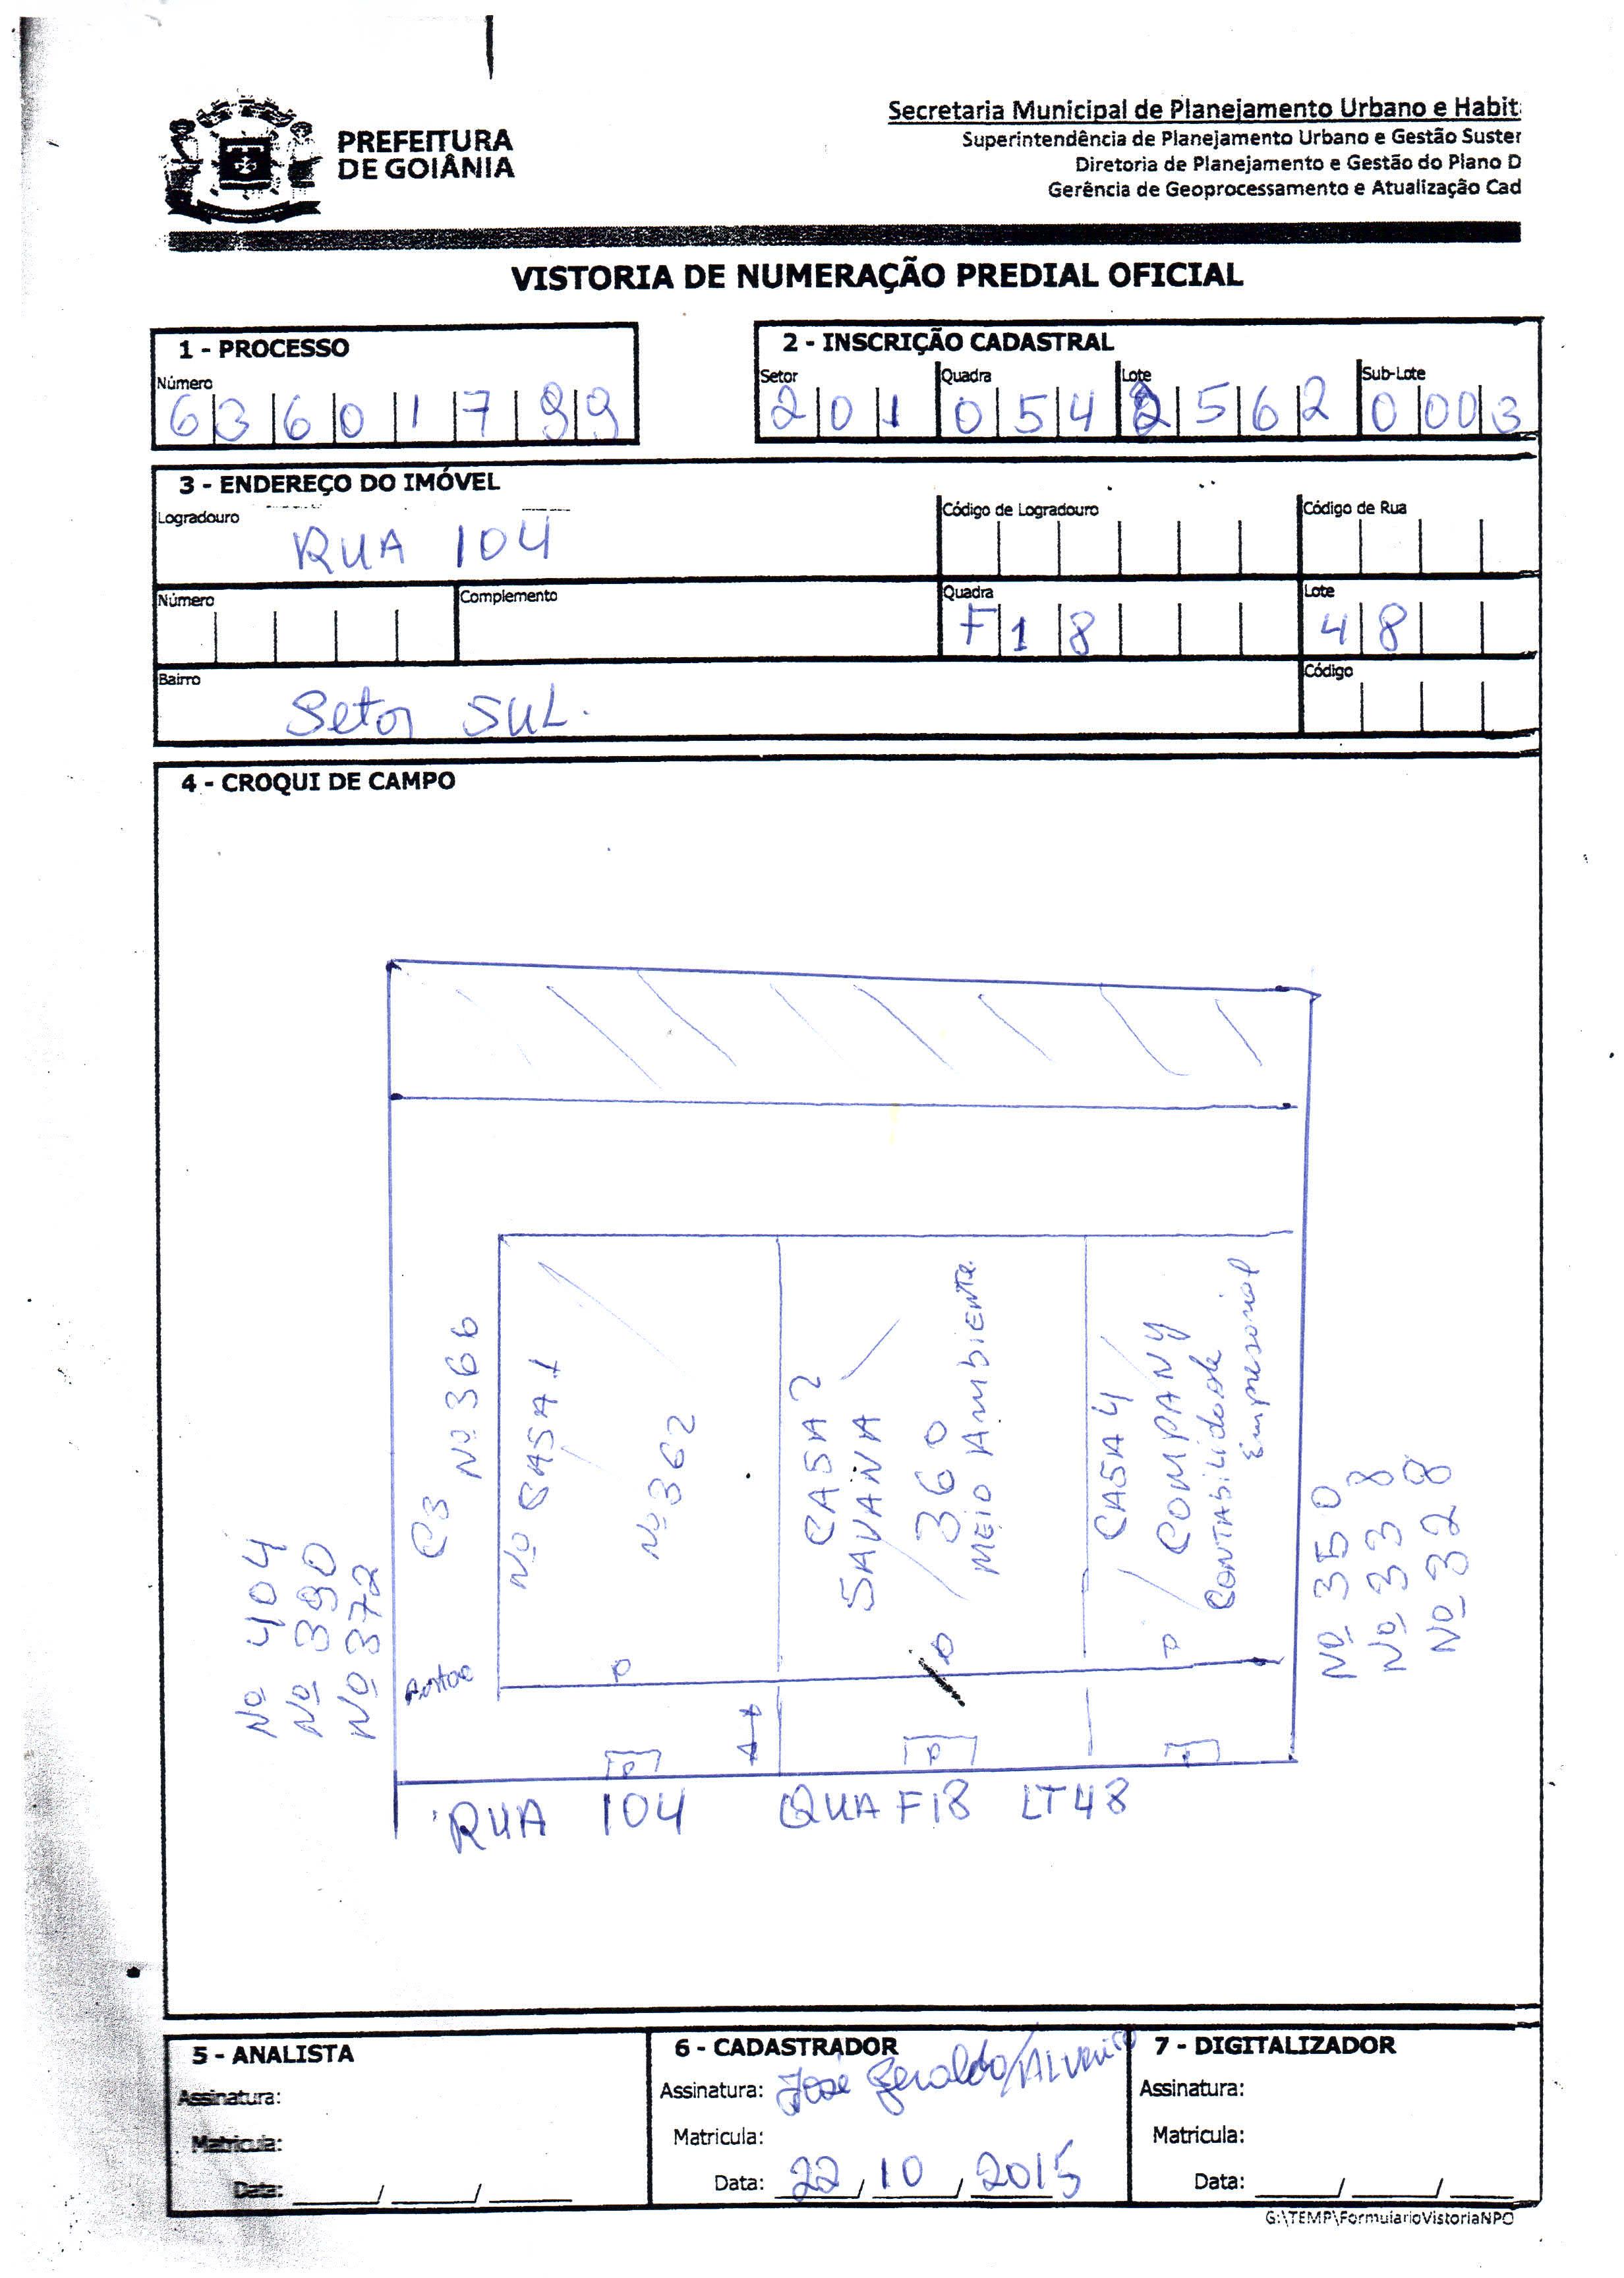 PREFEITURA
DE GOIÂNIA
Secretaria Municipal de Planejamento Urbano e Habit
Superintendência de Planejamento Urbano e Gestão Susten
Diretoria de Planejamento e Gestão do Plano D
Gerência de Geoprocessamento e Atualização Cad
VISTORIA DE NUMERAÇÃO PREDIAL OFICIAL
1 - PROCESSO
Número
6 3 6 0 1 7 9 9
2 - INSCRIÇÃO CADASTRAL
Setor Quadra Lote Sub-Lote
2 0 1 0 5 4 2 5 6 2 0 0 0 3
3 - ENDEREÇO DO IMÓVEL
Logradouro
RUA 104
Código de Logradouro
Código de Rua
Número
Complemento
Quadra
F 1 8
Lote
4 8
Bairro
Setor SUL.
Código
4 - CROQUI DE CAMPO
Nº 404
Nº 390
Nº 372
C3 Nº 366
Portão
Nº CASA 1
Nº 362
CASA 2
SAVANA
360
MEIO AMBIENTE
CASA 4
COMPANY
CONTABILIDADE
Empresarial
Nº 350
Nº 338
Nº 328
RUA 104 QUA F18 LT48
5 - ANALISTA
Assinatura:
Matricula:
Data: / /
6 - CADASTRADOR
Assinatura: José Geraldo
Matricula:
Data: 22 / 10 / 2015
7 - DIGITALIZADOR
Assinatura:
Matricula:
Data: / /
G:\TEMP\FormularioVistoriaNPO